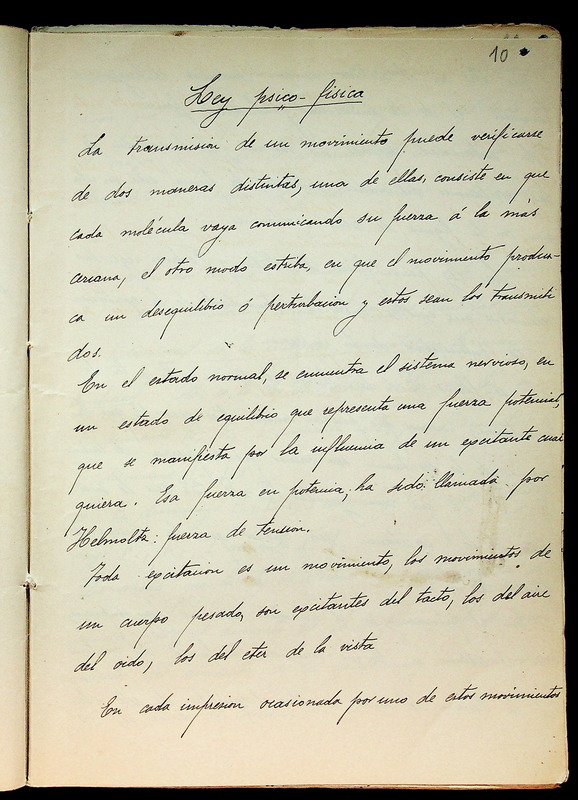 10
Ley psico-fisica
La transmision de un movimiento puede verificarse
de dos maneras distintas, una de ellas, consiste en que
cada molécula vaya comunicando su fuerza á la más
cercana, el otro modo estriba, en que el movimiento produz-
ca un desequilibrio ó perturbacion y estos sean los transmiti
dos.
En el estado normal, se encuentra el sistema nervioso, en
un estado de equilibrio que representa una fuerza potencial,
que se manifiesta por la influencia de un excitante cual
quiera. Esa fuerza en potencia, ha sido llamada por
Helmoltz: fuerza de tension.
Toda excitacion es un movimiento, los movimientos de
un cuerpo pesado, son excitantes del tacto, los del aire
del oido, los del eter de la vista
En cada impresion ocasionada por uno de estos movimientos